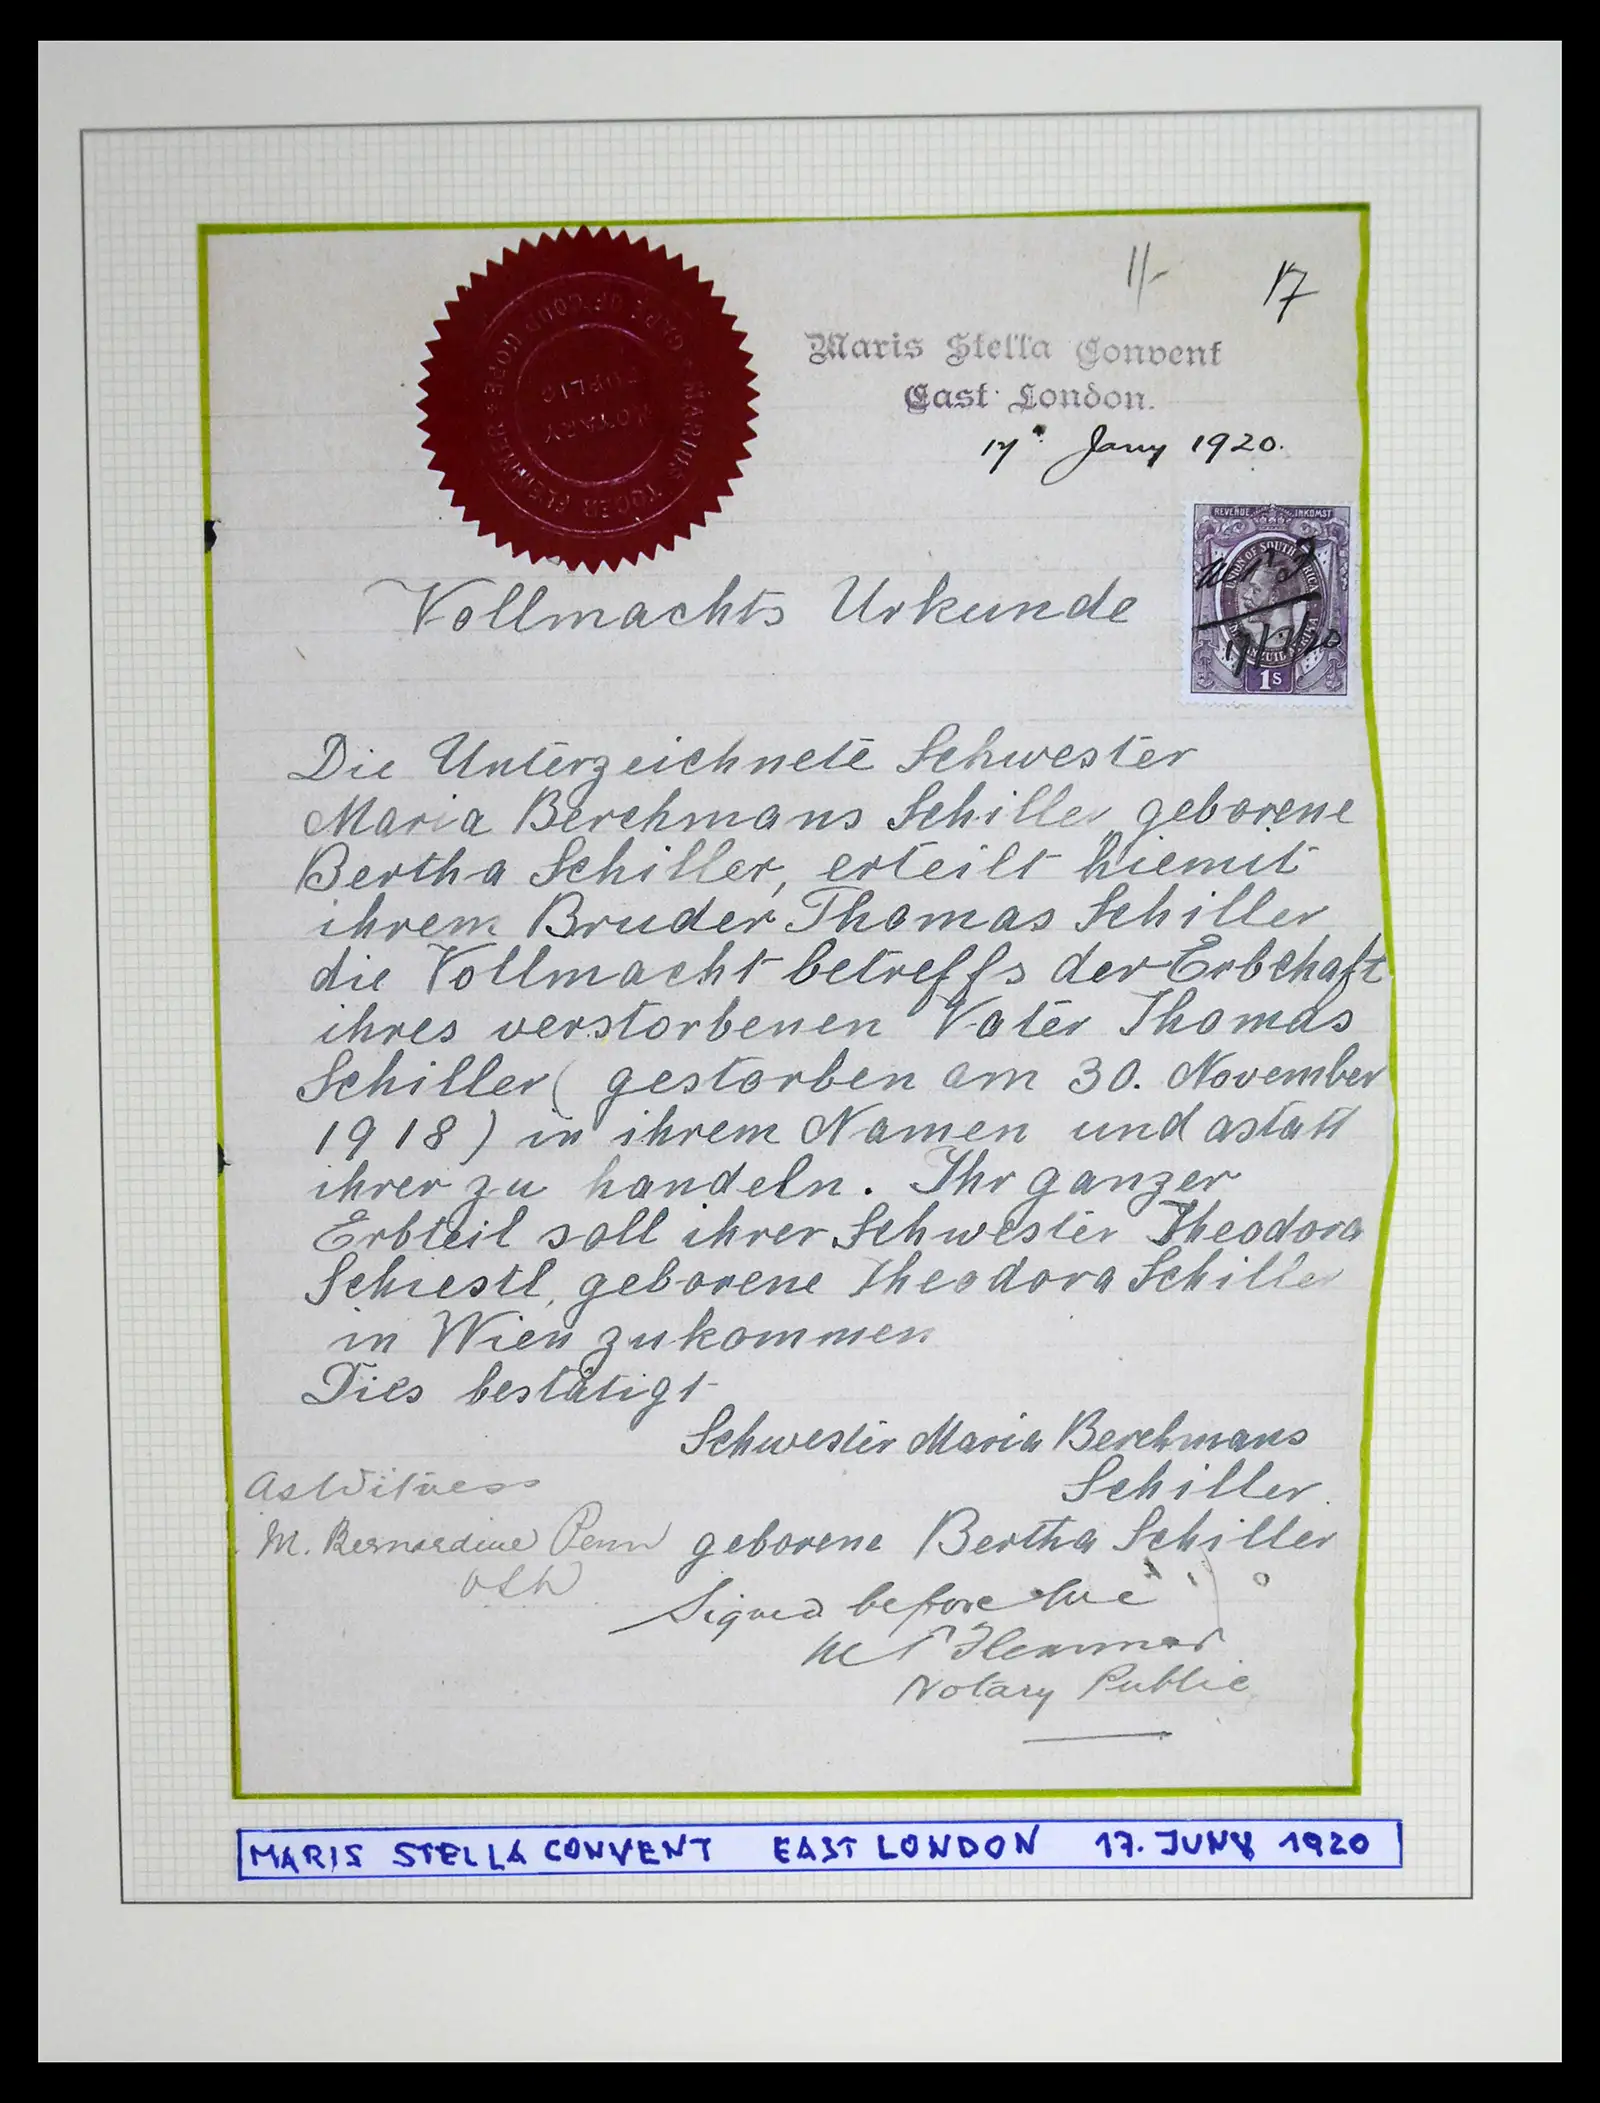 1/-
17
Maris Stella Convent
East London.
17. Jany 1920.
CAPE OF GOOD HOPE
MARIUS
NOTARY
PUBLIC
REVENUE INKOMST
UNION OF SOUTH AFRICA
17/1/20
1S
Vollmachts Urkunde
Die Unterzeichnete Schwester
Maria Berchmans Schiller geborene
Bertha Schiller, erteilt hiemit
ihrem Bruder Thomas Schiller
die Vollmacht betreffs der Erbchaft
ihres verstorbenen Vater Thomas
Schiller (gestorben am 30. November
1918) in ihrem Namen und astatt
ihrer zu handeln. Ihr ganzer
Erbteil soll ihrer Schwester Theodora
Schiestl, geborene Theodora Schiller
in Wien zukommen
Dies bestätigt
Schwester Maria Berchmans
Schiller.
geborene Bertha Schiller
As Witness
M. Bernardine Penn
Signed before me
Notary Public
MARIS STELLA CONVENT EAST LONDON 17. JUNY 1920